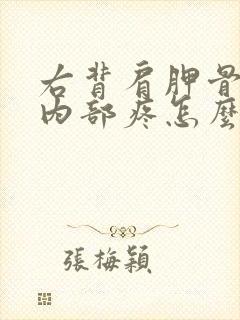 右背肩胛骨
内部疼怎麼
張梅穎